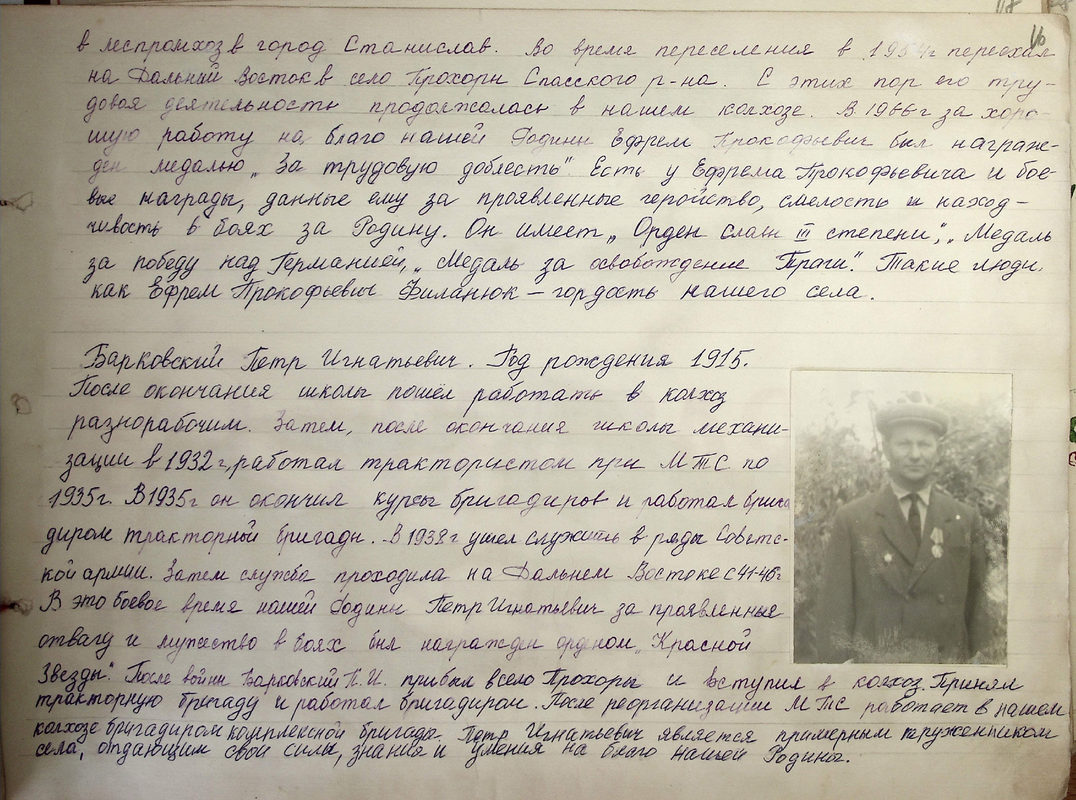 16
в леспромхоз в город Станислав. Во время переселения в 1954г переехал
на Дальний Восток в село Прохоры Спасского р-на. С этих пор его тру-
довая деятельность продолжалась в нашем колхозе. В 1966г за хоро-
шую работу на благо нашей Родины Ефрем Прокофьевич был награж-
ден медалью „За трудовую доблесть". Есть у Ефрема Прокофьевича и бое-
вые награды, данные ему за проявленные геройство, смелость и наход-
чивость в боях за Родину. Он имеет „Орден славы III степени", „Медаль
за победу над Германией, „Медаль за освобождение Праги". Такие люди,
как Ефрем Прокофьевич Филанюк – гордость нашего села.
Барковский Петр Игнатьевич. Год рождения 1915.
После окончания школы пошёл работать в колхоз
разнорабочим. Затем, после окончания школы механи-
зации в 1932г, работал трактористом при МТС по
1935г. В 1935г он окончил курсы бригадиров и работал брига
диром тракторной бригады. В 1938г ушел служить в ряды Советс-
кой армии. Затем служба проходила на Дальнем Востоке с 41-46г
В это боевое время нашей Родины Петр Игнатьевич за проявленные
отвагу и мужество в боях был награжден орденом „Красной
Звезды". После войны Барковский П.И. прибыл в село Прохоры и вступил в колхоз. Принял
тракторную бригаду и работал бригадиром. После реорганизации МТС работает в нашем
колхозе бригадиром комплексной бригады. Петр Игнатьевич является примерным тружеником
села, отдающим свои силы, знания и умения на благо нашей Родины.